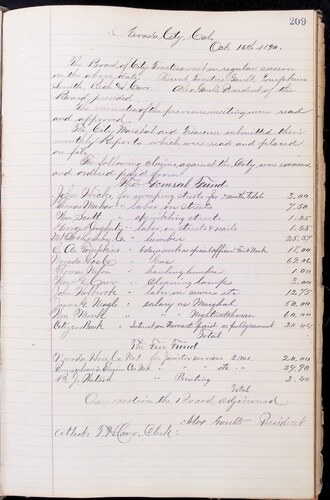 209
Nevada City, Cal.
Oct. 16th 1890.
The Board of City Trustees met in regular session
on the above date. Present Trustees Gault, Tompkins
Smith, Rich & Carr. Alex Gault President of the
Board presided.
The minutes of the previous meeting were read
and approved.
The City Marshal and Treasurer submitted their
monthly Reports which were read and placed
on file.
The following claims against the City were examined
and ordered paid from
The General Fund
John Hicks for sweeping streets for month 3.00
labor on streets 7.50
Wm Scott " sprinkling streets 1.25
George Dougherty " labor on streets & nails 1.25
" lumber 25.37
E. O. Tompkins " 18.00
Nevada Gas Co " Gas
" hauling lumber 1.00
" Cleaning lamps 2.00
" labor on sewer etc 12.75
George H. Neagle " salary as Marshal 50.00
Wm " " " Nightwatchman 60.00
Citizens Bank " Interest on Warrants paid as per agreement 20.44
Total
The Fire Fund
Nevada Hose Co. No 1 for Janitor services 2 mos. 20.00
Pennsylvania Engine Co No 2 " " " 29.90
" Printing 2.40
Total
On motion the Board adjourned
Alex Gault President
Attest: T. H. Carr, Clerk.